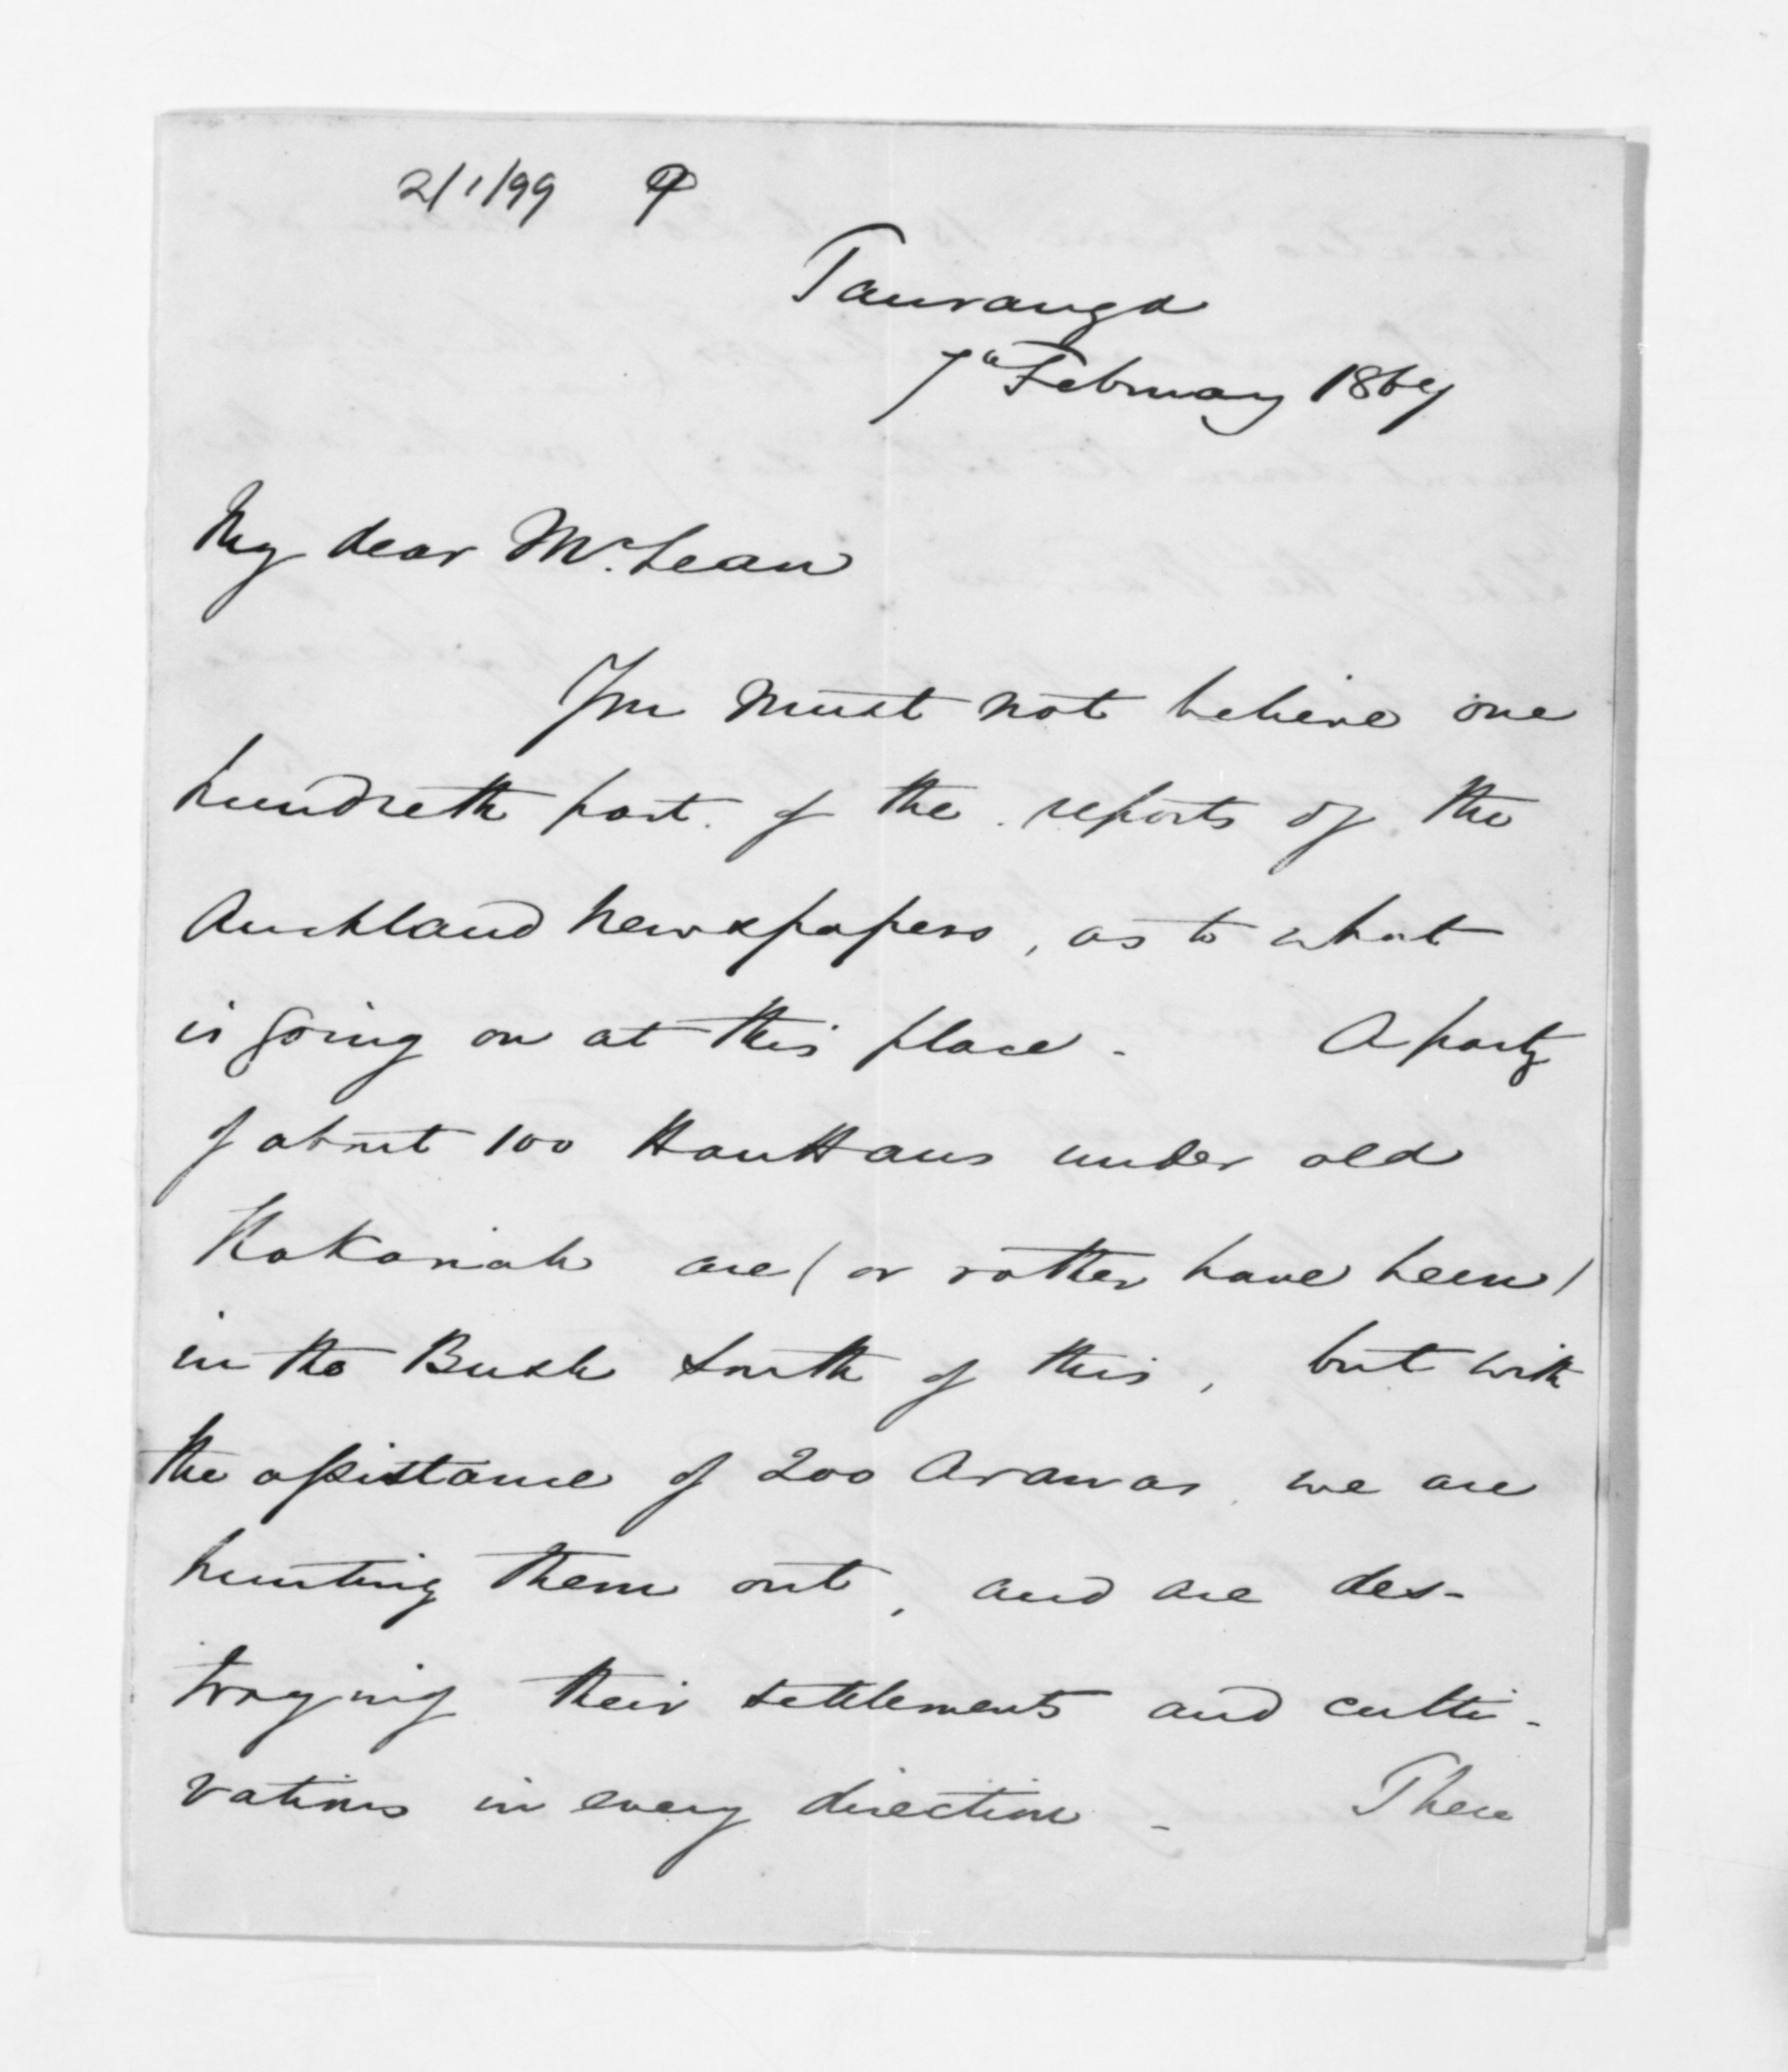 2/1/99 P
Tauranga
7th February 1867
My dear McLean
You must not believe one
hundreth part of the reports of the
Auckland Newspapers, as to what
is going on at this place - A party
of about 100 HauHaus under old
Kokoriah are (or rather have been)
in the Bush South of this, but with
the assistance of 200 Arawas, we are
hunting them out, and are des-
troying their settlements and culti-
vations in every direction - There